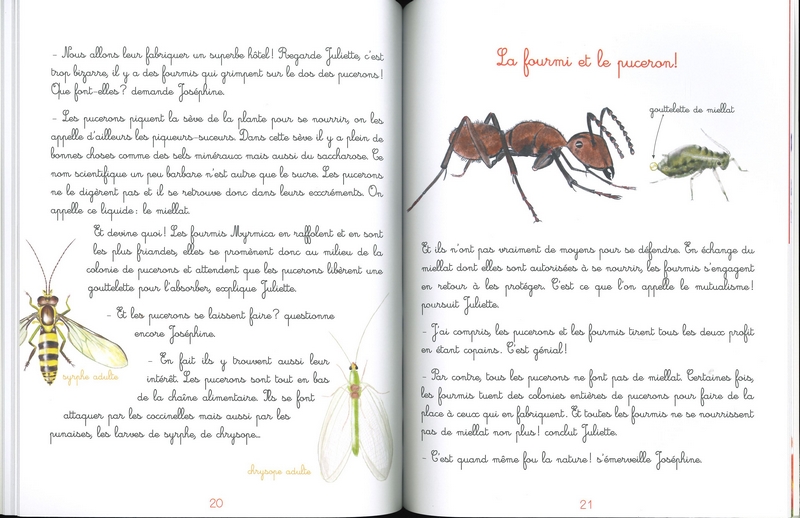 - Nous allons leur fabriquer un superbe hôtel! Regarde Juliette, c'est
trop bizarre, il y a des fourmis qui grimpent sur le dos des pucerons!
Que font-elles? demande Joséphine.
- Les pucerons piquent la sève de la plante pour se nourrir, on les
appelle d'ailleurs les piqueurs-suceurs. Dans cette sève il y a plein de
bonnes choses comme des sels minéraux mais aussi du saccharose. Ce
nom scientifique un peu barbare n'est autre que le sucre. Les pucerons
ne le digèrent pas et il se retrouve donc dans leurs excréments. On
appelle ce liquide: le miellat.
Et devine quoi! Les fourmis Myrmica en raffolent et en sont
les plus friandes, elles se promènent donc au milieu de la
colonie de pucerons et attendent que les pucerons libèrent une
gouttelette pour l'absorber, explique Juliette.
- Et les pucerons se laissent faire? questionne
encore Joséphine.
- En fait ils y trouvent aussi leur
intérêt. Les pucerons sont tout en bas
de la chaîne alimentaire. Ils se font
attaquer par les coccinelles mais aussi par les
punaises, les larves de syrphe, de chrysope...
syrphe adulte
chrysope adulte
20
La fourmi et le puceron!
gouttelette de miellat
Et ils n'ont pas vraiment de moyens pour se défendre. En échange du
miellat dont elles sont autorisées à se nourrir, les fourmis s'engagent
en retour à les protéger. C'est ce que l'on appelle le mutualisme!
poursuit Juliette.
- J'ai compris, les pucerons et les fourmis tirent tous les deux profit
en étant copains. C'est génial!
- Par contre, tous les pucerons ne font pas de miellat. Certaines fois,
les fourmis tuent des colonies entières de pucerons pour faire de la
place à ceux qui en fabriquent. Et toutes les fourmis ne se nourrissent
pas de miellat non plus! conclut Juliette.
- C'est quand même fou la nature! s'émerveille Joséphine.
21